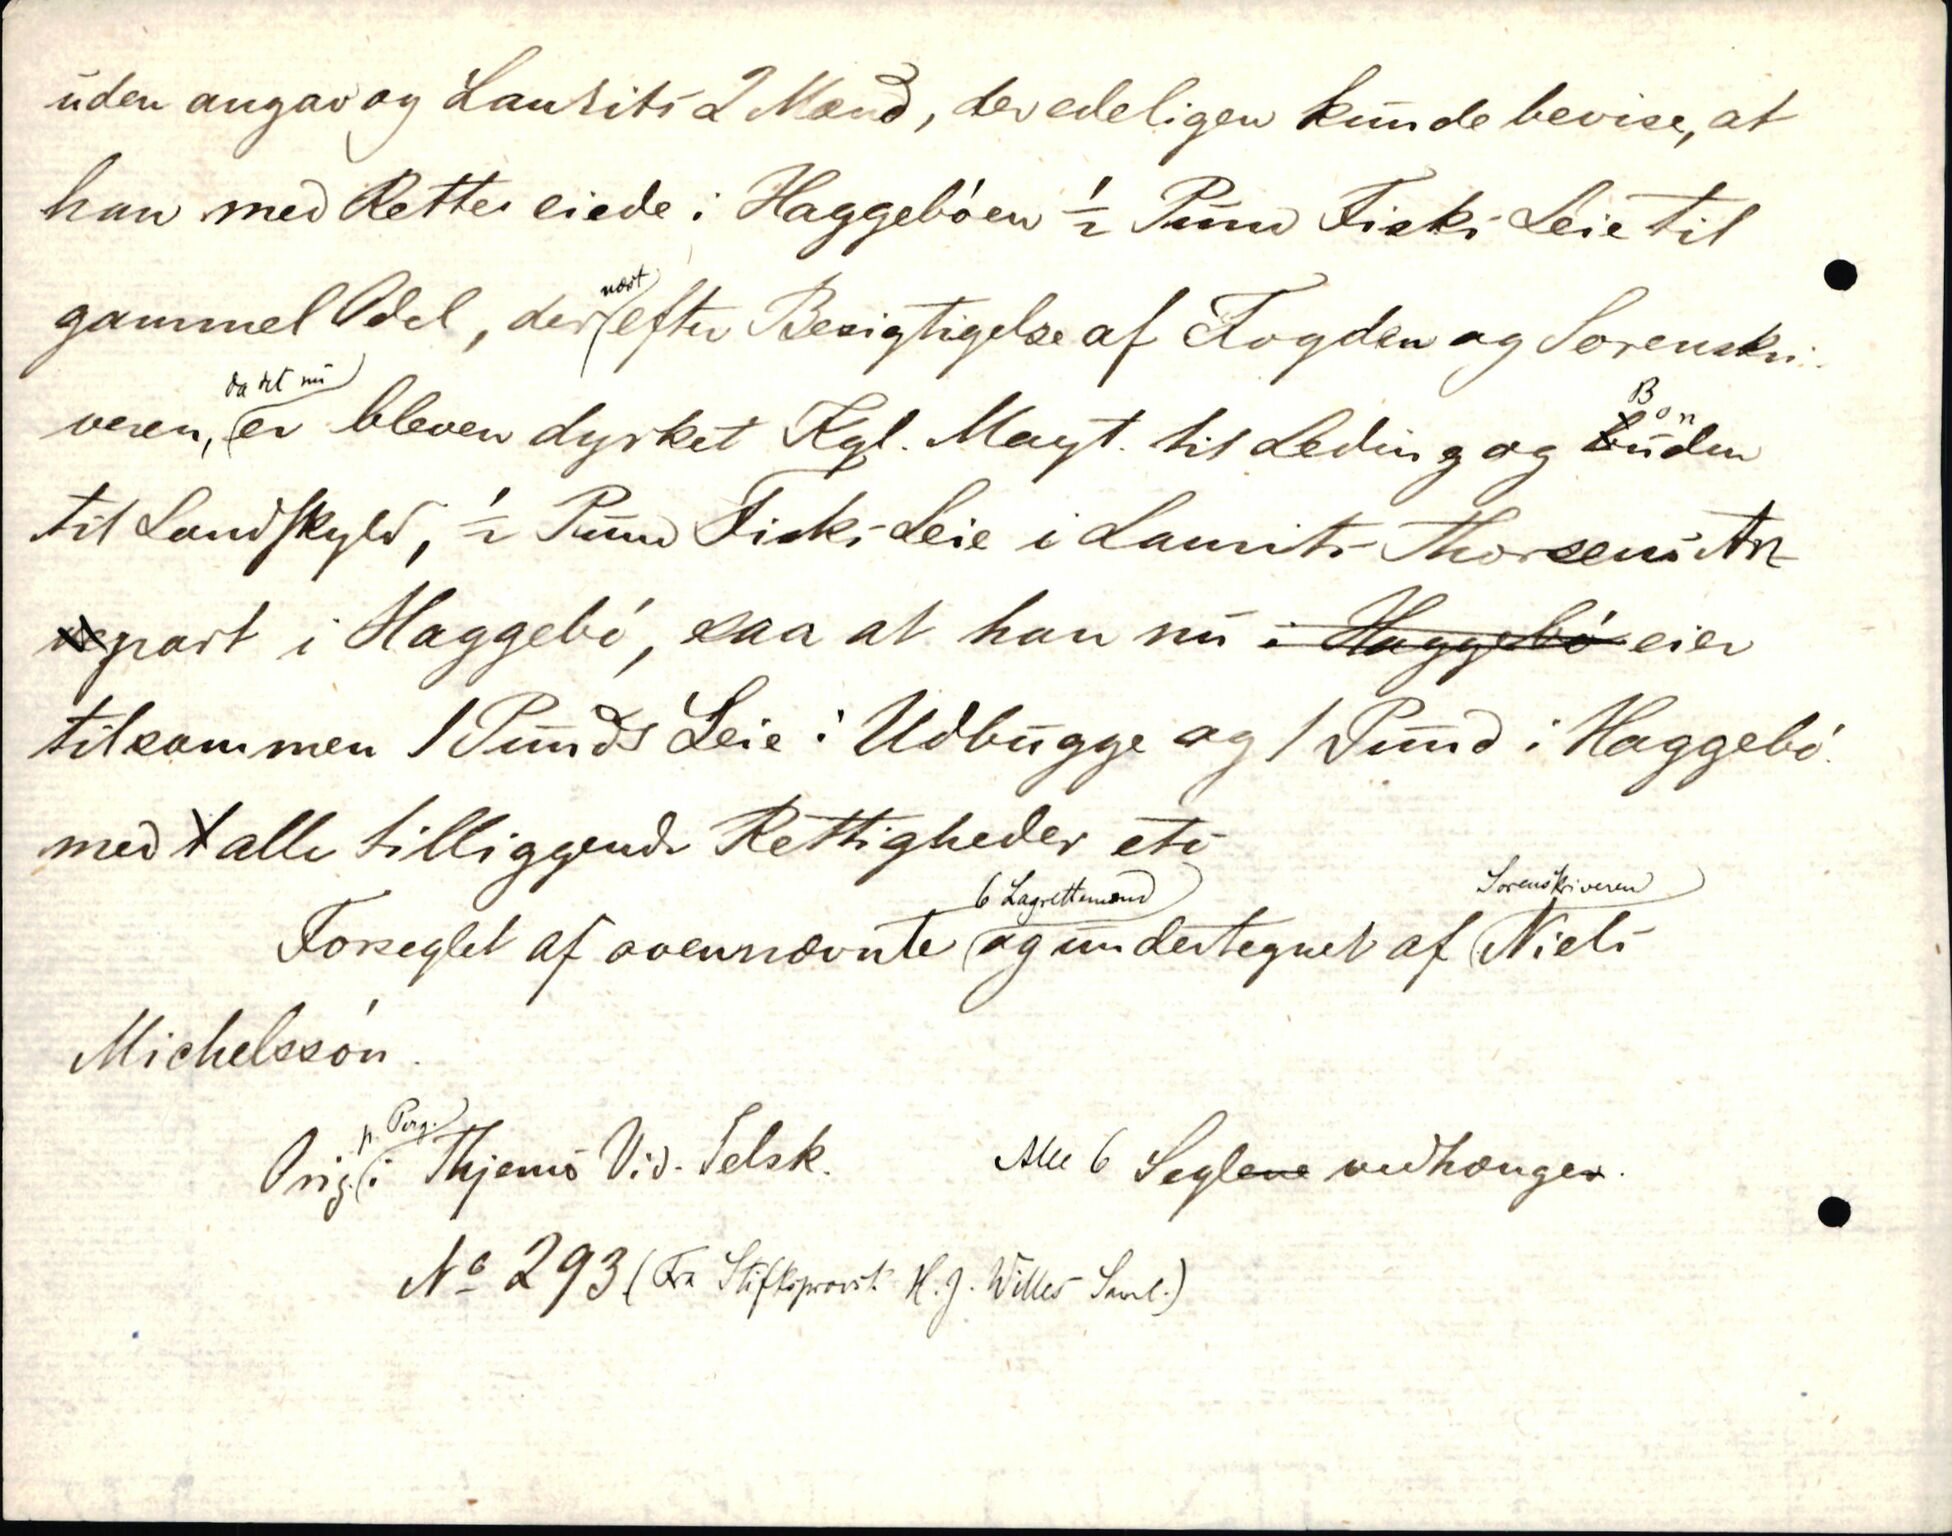 uden angav og Laurits 2 Mænd, der edeligen kunde bevise, at
han med Rette eiede i Haggebøen ½ Pund Fisks Leie til
gammel Odel, der næst efter Besigtigelse af Fogden og Sorenskri-
veren, da det nu er bleven dyrket Kgl. Mayt. til Leding og Bonden
til Landskyld, ½ Pund Fisks Leie i Laurits Thorsens An-
part i Haggebø, saa at han nu i Haggebø eier
tilsammen 1 Punds Leie i Udbugge og 1 Pund i Haggebø
med alle tilliggende Rettigheder etc
Forseglet af ovennævnte 6 Lagrettemænd og undertegnet af Sorenskriveren Niels
Michelssøn.
Orig. p. Perg. i Thjems Vid. Selsk. Alle 6 Seglene vedhænger.
No 293 (Fra Stiftsprovst H. J. Willes Saml.)